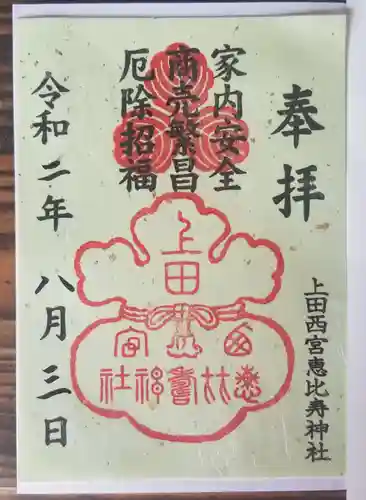 奉拝
上田西宮恵比寿神社
家内安全
商売繁昌
厄除招福
上田
西宮
恵比寿神社
令和二年 八月三日